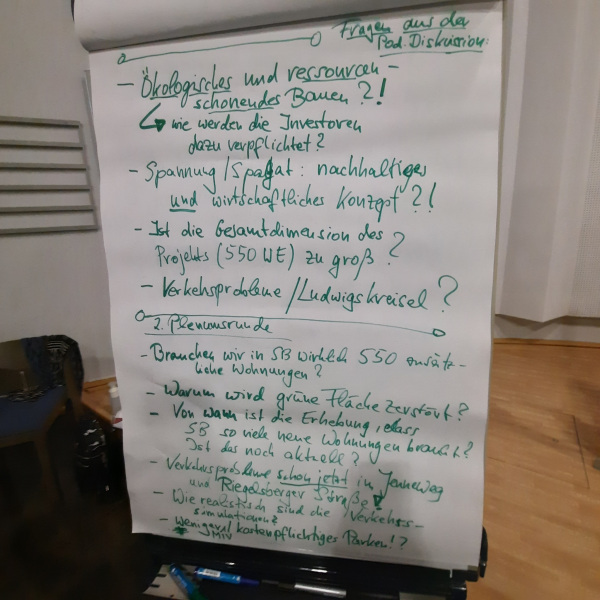 Fragen aus der
Pod. Diskussion:
- Ökologisches und ressourcen-
schonendes Bauen?!
↳ wie werden die Investoren
dazu verpflichtet?
- Spannung/Spagat: nachhaltiges
und wirtschaftliches Konzept?!
- Ist die Gesamtdimension des
Projekts (550 WE) zu groß?
- Verkehrsprobleme/Ludwigskreisel?
2. Plenumsrunde
- Brauchen wir in SB wirklich 550 zusätz-
liche Wohnungen?
- Warum wird grüne Fläche zerstört?
- Von wann ist die Erhebung, dass
SB so viele neue Wohnungen braucht?
Ist das noch aktuell?
- Verkehrsprobleme schon jetzt im Jenneweg
und Riegelsberger Straße
- Wie realistisch sind die Verkehrs-
simulationen?
- weniger MIV / kostenpflichtiges Parken!?